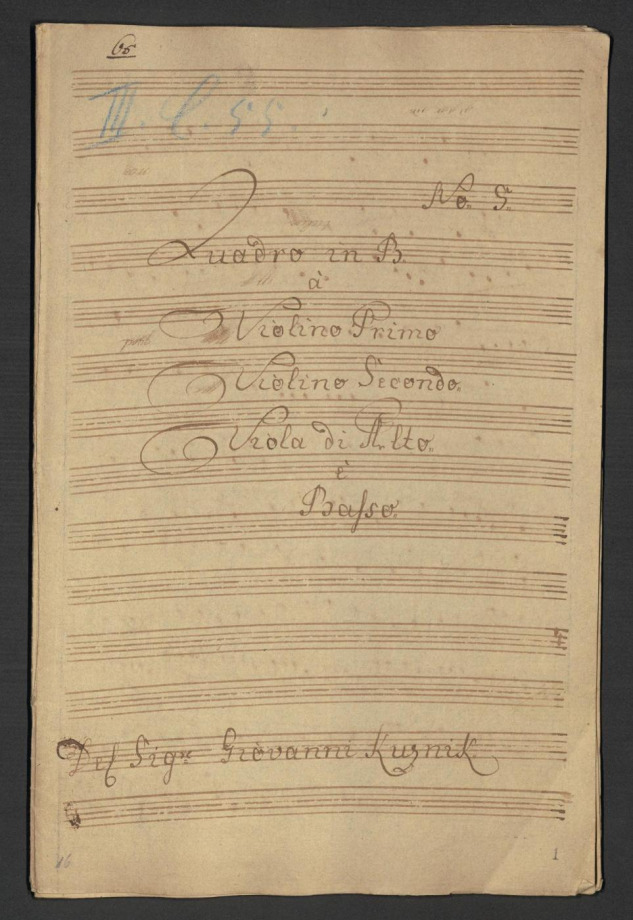 65
III. C. 55.
No. 5.
Quadro in B.
à
Violino Primo
Violino Secondo.
Viola di Alto.
è
Basso.
Del Sigre Giovanni Kuznik
16
1